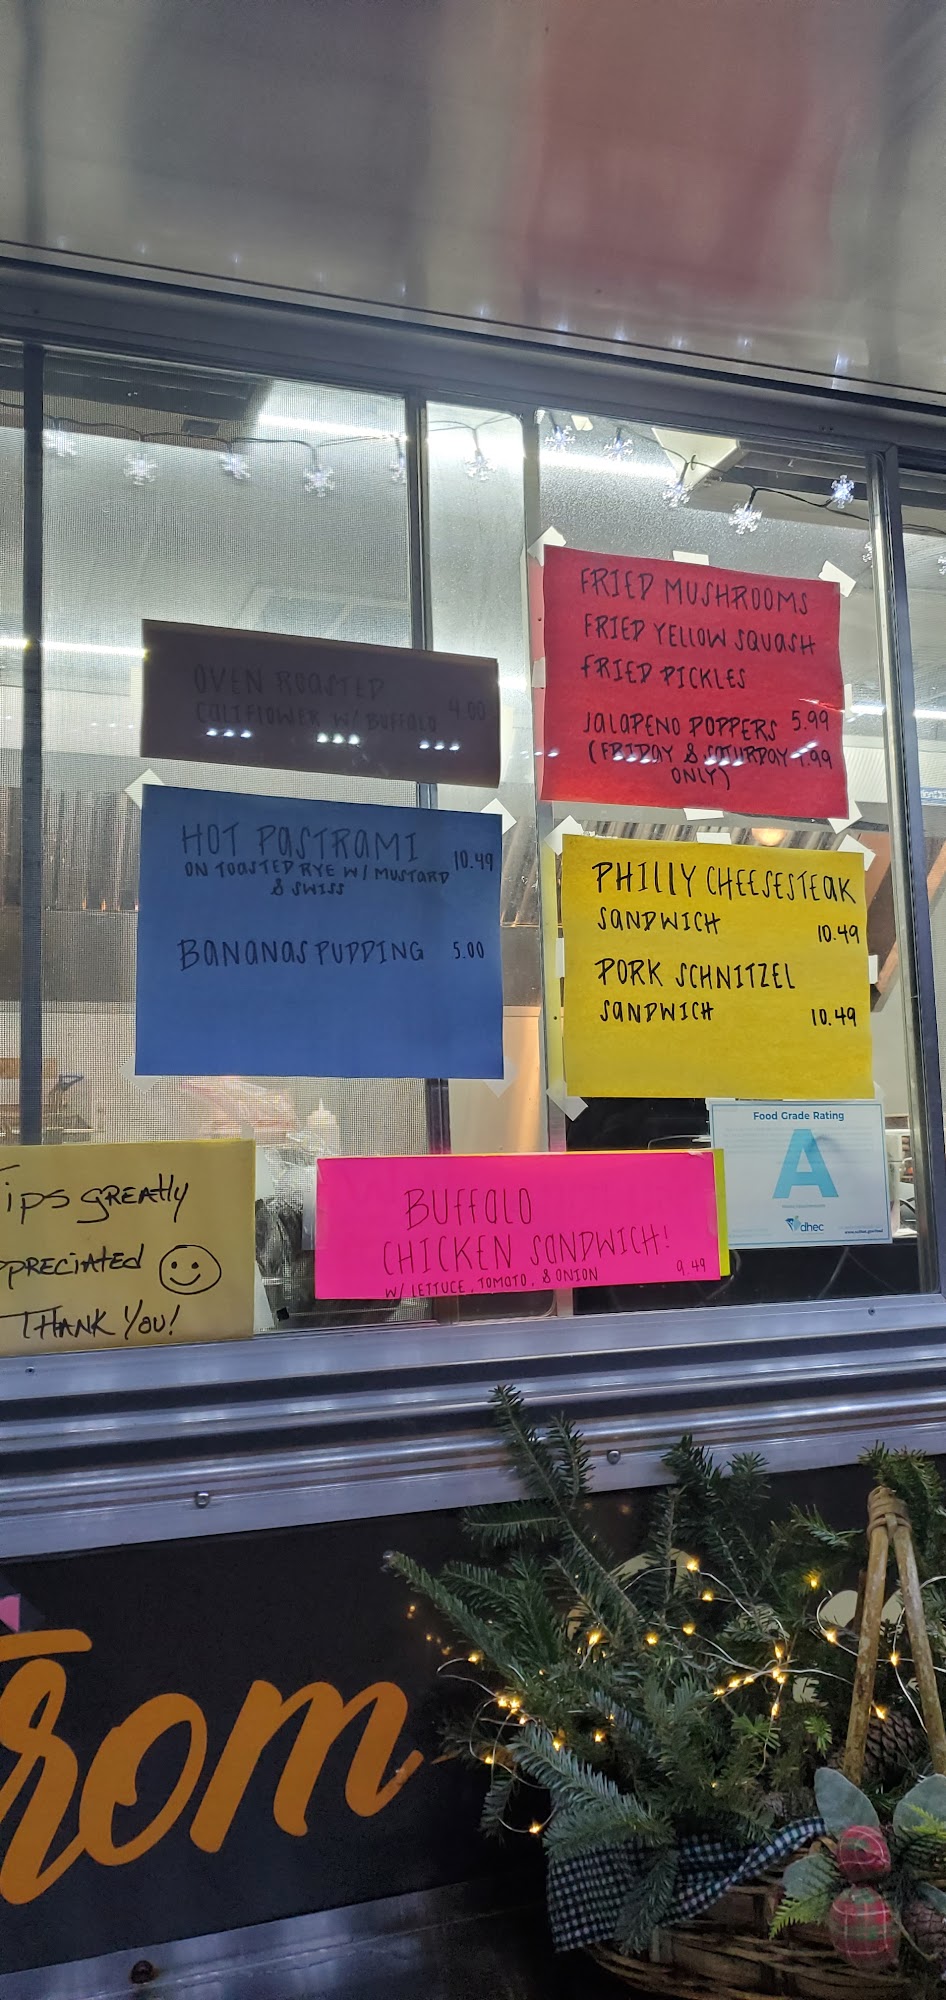 FRIED MUSHROOMS
FRIED YELLOW SQUASH
FRIED PICKLES
JALAPENO POPPERS 5.99
(FRIDAY & SATURDAY
ONLY)
OVEN ROASTED
CALIFLOWER W/ BUFFALO 4.00
HOT PASTRAMI 10.49
ON TOASTED RYE W/ MUSTARD
& SWISS
BANANAS PUDDING 5.00
PHILLY CHEESESTEAK
SANDWICH 10.49
PORK SCHNITZEL
SANDWICH 10.49
Food Grade Rating
A
dhec
TIPS GREATLY
PPRECIATED
THANK YOU!
BUFFALO
CHICKEN SANDWICH!
W/ LETTUCE, TOMOTO, & ONION 9.49
rom